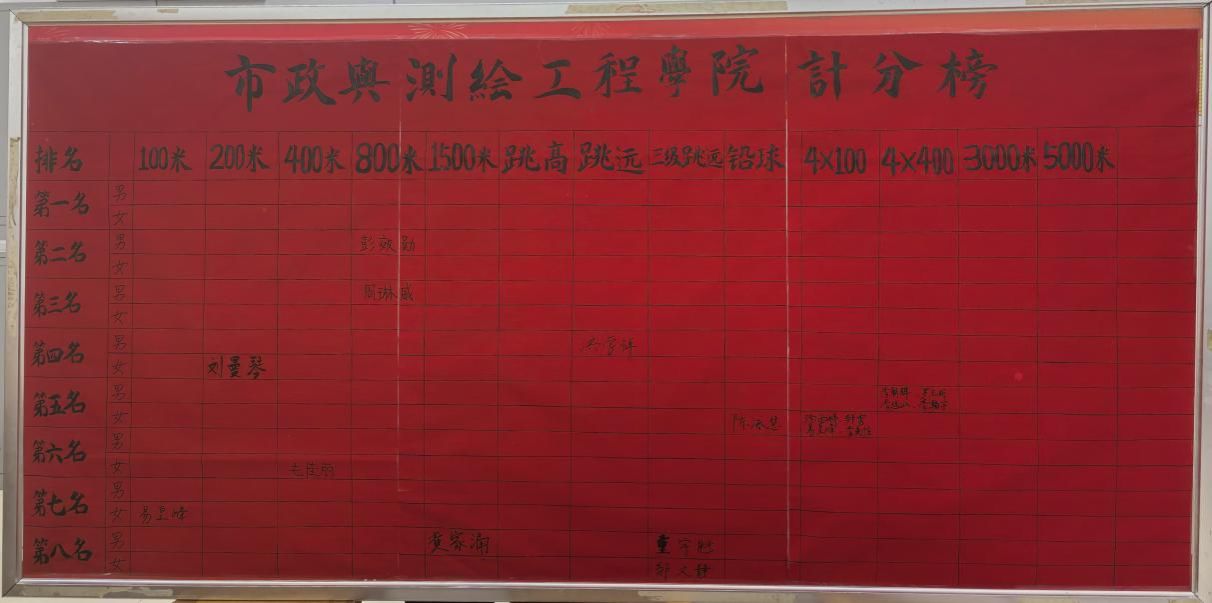 市政與測絵工程學院 計分榜
排名 100米 200米 400米 800米 1500米 跳高 跳远 三级跳远 铅球 4×100 4×400 3000米 5000米
第一名 男
女
第二名 男 彭效勋
女
第三名 男 周琳威
女
第四名 男
女 刘曼琴
第五名 男
女
第六名 男
女
第七名 男
女 易昱峰
第八名 男 黄家湘
女